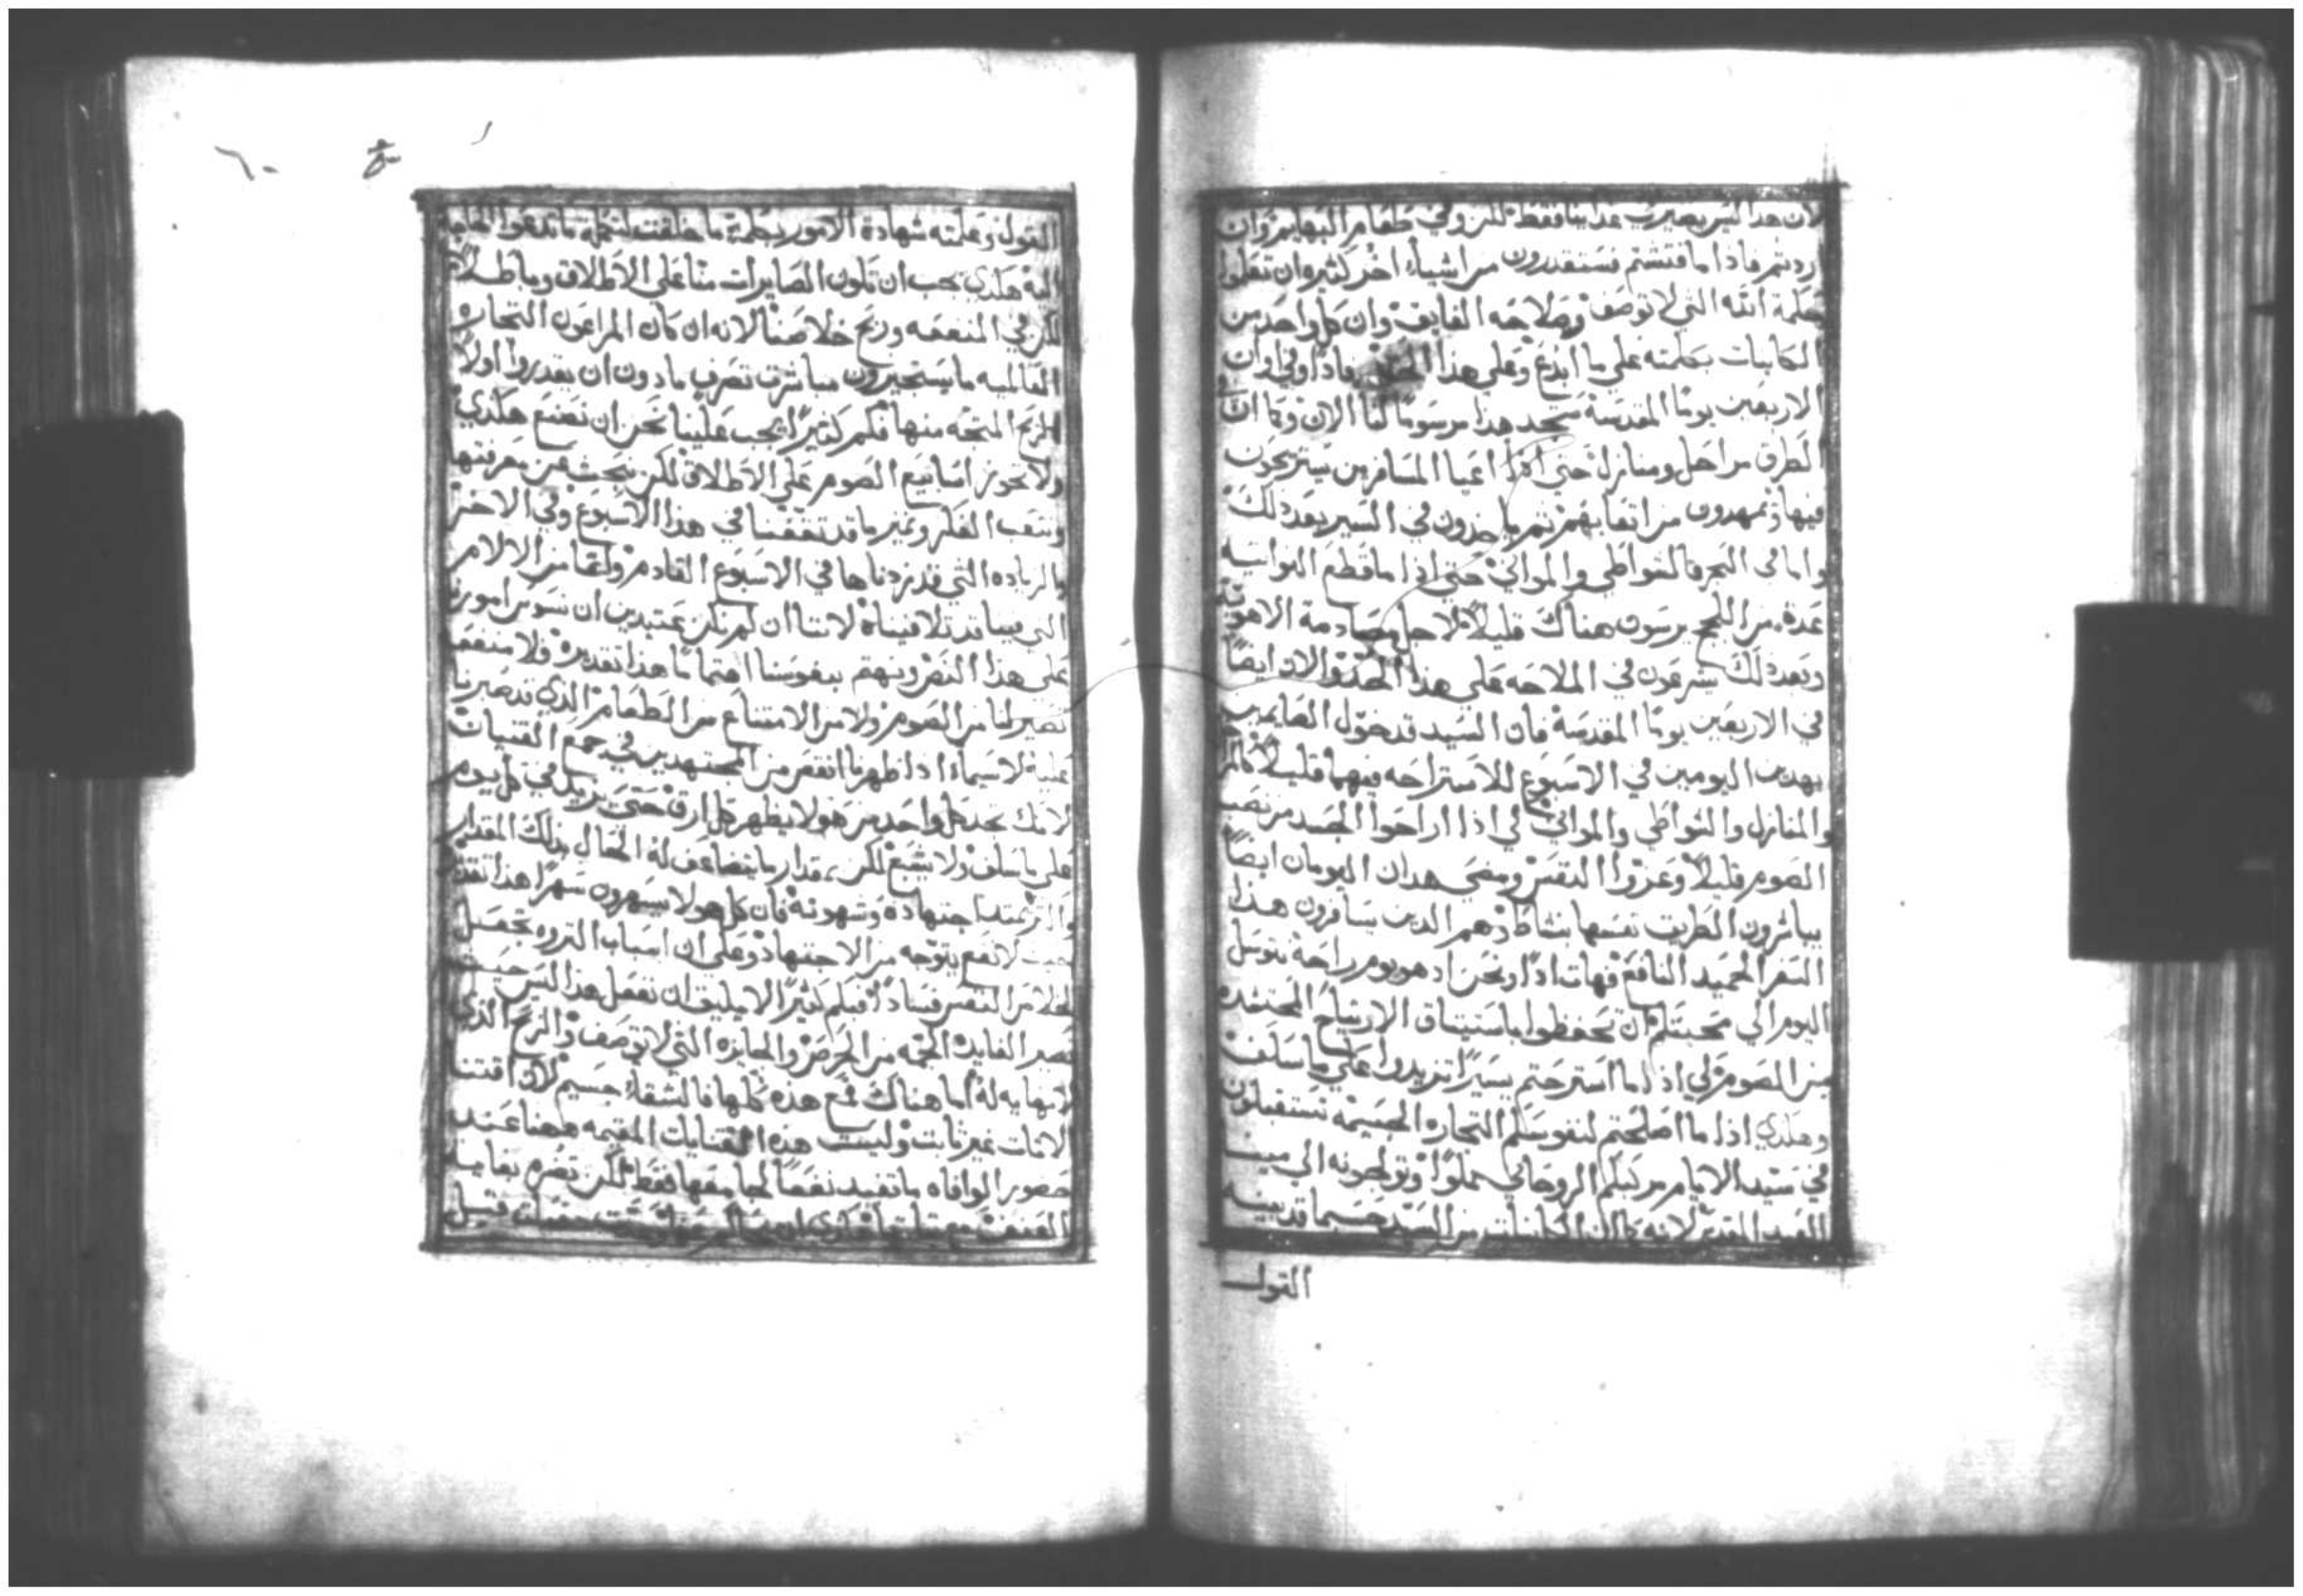 لان هدا ليس يصير عدا بنا فقط لكن وفي طعام البهايم وان
اردتم فاذا ما فتشتم فستقدرون من اشياء اخر كثيره ان تعلموا
حكمة الله التي لا توصف وصلاحه الفايق وان كل واحد من
الكاينات بحكمته على ما ابدع وعلى هذا فاذا وفي اوان
الاربعين يوما المقدسة نجد هدا مرسوما لنا الان وكما ان
الطرق مراحل ومنازل حتى اذا اعيا المسافرين يستريحون
فيها ويمهدون من اتعابهم ثم ياخدون في السير بعد ذلك
واما في البحر فالشواطي والمواني حتى اذا ما قطع النواتيه
عدة من اللجج يرسون هناك قليلا لاجل مصادمة الاهويه
وبعد ذلك يشرعون في الملاحه على هذا الحد والان ايضا
في الاربعين يوما المقدسة فان السيد قد خول الصايمين
بهدين اليومين في الاسبوع للاستراحه فيهما قليلا
والمنازل والشواطي والمواني لكي اذا اراحوا الجسد من نصب
الصوم قليلا وعزوا النفس ومضي هدان اليومان ايضا
يباشرون الطريق نفسها بنشاط وهم الدين يسافرون هدا
السفر الحميد النافع فهات اذا ونحن اذ هو يوم راحة نتوسل
اليوم الي محبتكم ان تحفظوا باستيثاق الارتياح المحتشده
من الصوم لكي اذا ما استرحتم يسيرا تزيدوا على ما سلف
وهكدي اذا ما اصلحتم لنفوسكم التجاره الجسيمه تستقبلون
في سيد الايام من كيلكم الروحاني مملوا وتولجونه الي مينا
العيد المقدس لانه كما ان الكاينات من السيد حسبما قد بينه
القول
٦٠
القول وعلمته شهادة الامور بحكمة ما خلقت لتتممة ما تدعوا الحاجة
اليه هكدي يجب ان تكون الصايرات منا على الاطلاق وباطلا
لكن في المنفعه وربح خلاصنا لانه ان كان المراعون التجاره
العالميه ما يستجيزون مباشرة تصرف ما دون ان يقدروا اولا
الربح المتجه منها فكم كثيرا يجب علينا نحن ان نصنع هكدي
ولا نجوز اسابيع الصوم على الاطلاق لكن نبحث عن معرفتها
ونتعب الفكر ونميز ما قد تثقفنا في هذا الاسبوع وفي الاخر
بالزياده التي قد زدناها في الاسبوع القادم وايما من الالام
التي فينا قد تلافيناه لاننا ان لم نكن عتيدين ان نسوس امورنا
على هدا النحو ونهتم بنفوسنا اهتماما هدا تقديره ولا منفعه
تصير لنا من الصوم ولا من الامتناع من الطعام الذي قد صبرنا
عليه لاسيما اذا ظهرنا انقص من المجتهدين في جمع القنيات
لانك تجد كل واحد من هولا يظهر كل ارق حتى يزيد في كل يوم
على ما سلف ولا يشبع لكن مقدار ما يتضاعف له الحال بذلك المقدار
يمتد اجتهاده وشهوته فان كل هولا يسهرون سهرا هدا تقديره
حيث لا نفع يتوجه من الاجتهاد وعلى ان اسباب الثروه تحصل
لخلاص النفس فسادا فبكم كثيرا لا يليق ان نفعل هدا ليس حيث
تصير الفايده الجمه من الحرص والجايزه التي لا توصف والربح الذي
لا نهايه له اما هناك فمع هذه كلها فالشقا جسيم لان اقتنا
الاثاث غير ثابت وليست هذه القنايات المقيمه ههنا عند
حضور الوافاه ما تفيد نفعا لجامعها فقط لكن تضره بغاية